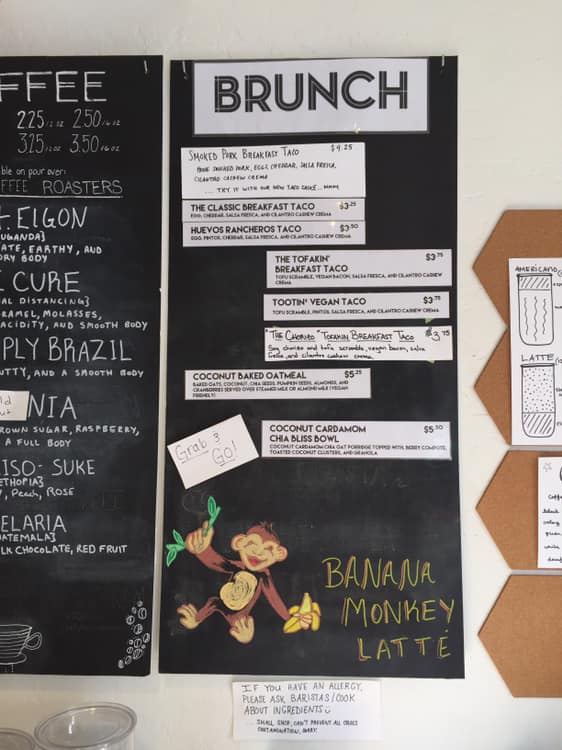 FFEE
2.25 12 OZ 2.50 16 OZ
3.25 12 OZ 3.50 16 OZ
ble on pour over:
FFEE ROASTERS
. EIGON
UGANDA}
ATE, EARTHY, AND
ORY BODY
CURE
AL DISTANCING}
RAMEL, MOLASSES,
ACIDITY, AND SMOOTH BODY
PLY BRAZIL
UTTY, AND A SMOOTH BODY
NIA
ROWN SUGAR, RASPBERRY,
A FULL BODY
ISO- SUKE
ETHOPIA}
, Peach, ROSE
ELARIA
UATEMALA}
LK CHOCOLATE, RED FRUIT
BRUNCH
SMOKED PORK BREAKFAST TACO $4.25
SMOKED PORK, EGG, CHEDDAR, SALSA FRESCA,
CILANTRO CASHEW CREMA
... TRY IT WITH OUR NEW TACO SAUCE... MMM
THE CLASSIC BREAKFAST TACO $3.25
EGG, CHEDDAR, SALSA FRESCA, AND CILANTRO CASHEW CREMA
HUEVOS RANCHEROS TACO $3.50
EGG, PINTOS, CHEDDAR, SALSA FRESCA, AND CILANTRO CASHEW CREMA
THE TOFAKIN' $3.75
BREAKFAST TACO
TOFU SCRAMBLE, VEGAN BACON, SALSA FRESCA, AND CILANTRO CASHEW
CREMA
TOOTIN' VEGAN TACO $3.75
TOFU SCRAMBLE, PINTOS, SALSA FRESCA, AND CILANTRO CASHEW CREMA
"THE CHORIZO" TOFAKIN BREAKFAST TACO $3.75
Soy chorizo and tofu scramble, vegan bacon, salsa
fresca, and cilantro cashew crema
COCONUT BAKED OATMEAL $5.25
BAKED OATS, COCONUT, CHIA SEEDS, PUMPKIN SEEDS, ALMONDS, AND
CRANBERRIES SERVED OVER STEAMED MILK OR ALMOND MILK (VEGAN
FRIENDLY)
COCONUT CARDAMOM $5.50
CHIA BLISS BOWL
COCONUT CARDAMOM CHIA OAT PORRIDGE TOPPED WITH BERRY COMPOTE,
TOASTED COCONUT CLUSTERS, AND GRANOLA
Grab &
Go!
BANANA
MONKEY
LATTÉ
IF YOU HAVE AN ALLERGY,
PLEASE ASK BARISTAS/COOK
ABOUT INGREDIENTS
... SMALL SHOP, CAN'T PREVENT ALL CROSS
CONTAMINATION, SORRY.
AMERICANO
LATTE